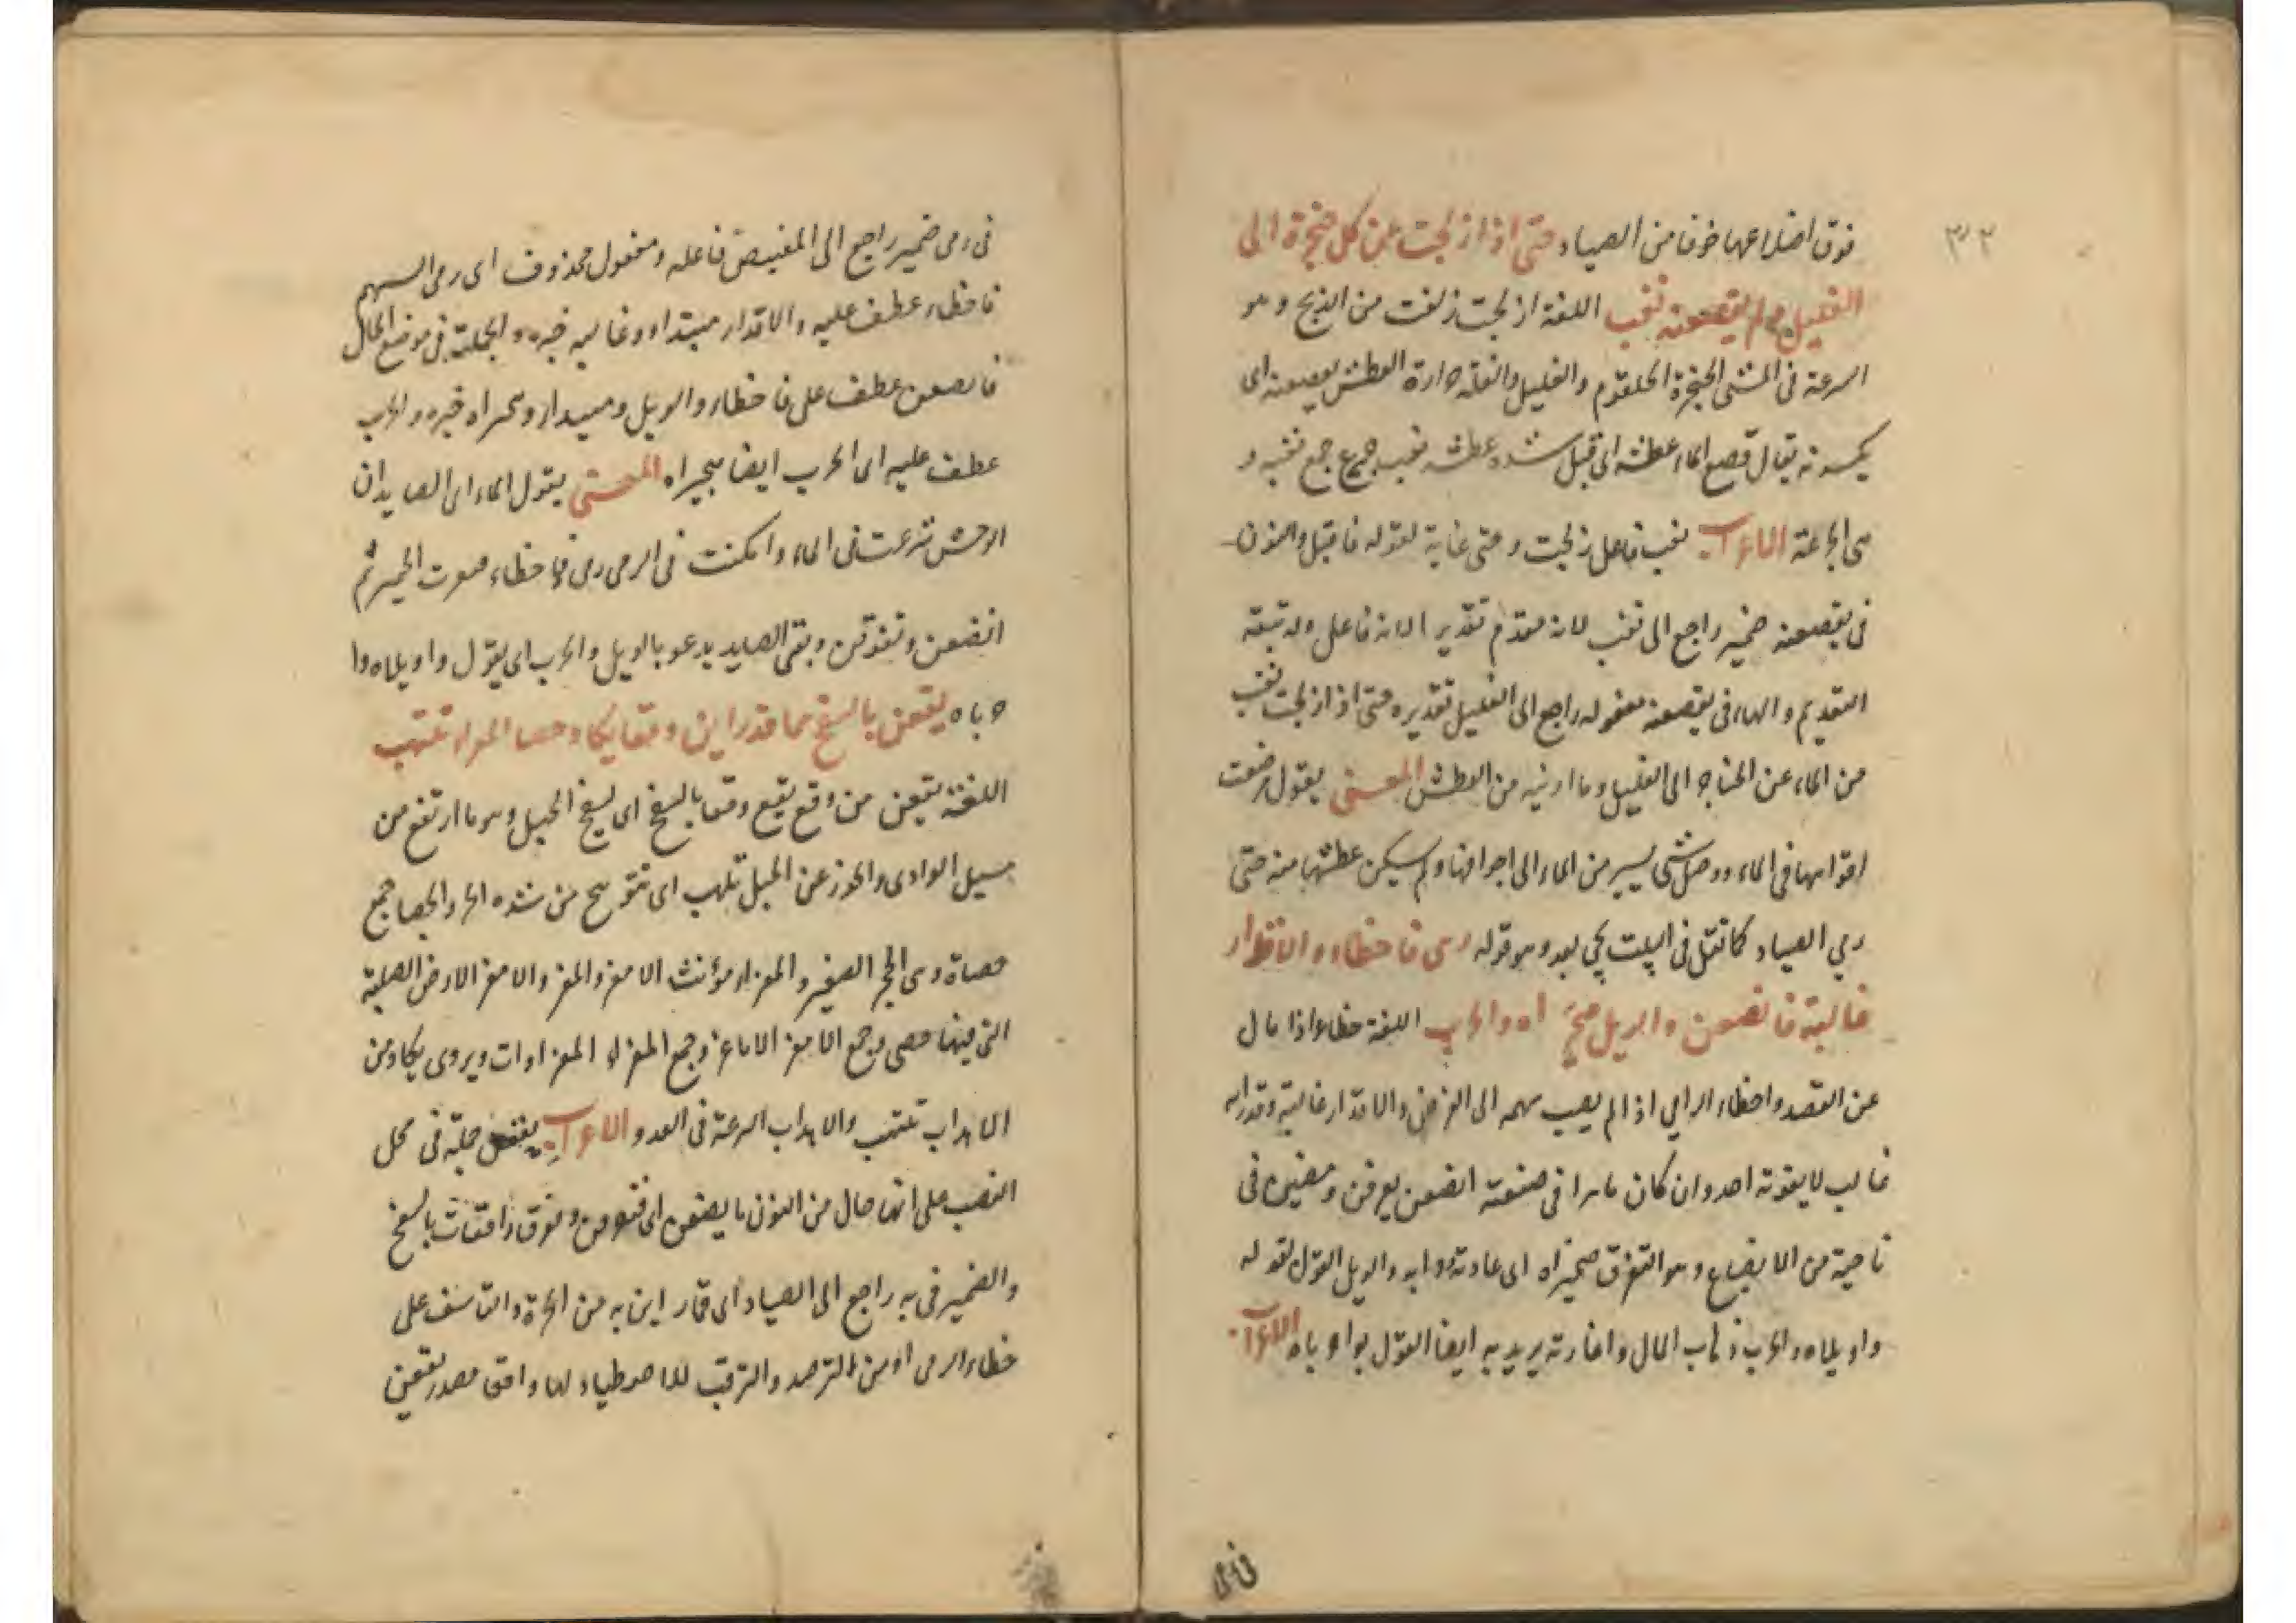 فوق اضلاعها خوفا من الصياد حتى اذا زلجت عن كل حنجرة الى
الغليل ولم يقصعنه نغب اللغة ازلجت زلفت من الزلج وهو
السرعة فى المشى الحنجرة الحلقوم والغليل والغلة حرارة العطش يقصعنه اى
يكسرنه يقال قصع الماء عطشه اى قتل شدة عطشه نغب جرع جمع نغبة و
هى الجرعة الاعراب نغب فاعل زلجت وحتى غاية لقوله فاقبل والنون
فى يقصعنه ضمير راجع الى نغب لانه مقدم تقديرا لانه فاعل وله رتبة
التقديم والهاء فى يقصعنه مفعوله راجع الى الغليل تقديره حتى اذا زلجت نغب
من الماء عن الحناجر الى الغليل وما اروينه من العطش المعنى يقول وضعت
افواهها فى الماء ووصل شى يسير من الماء الى اجوافها ولم يسكن عطشها منه حتى
رمى الصياد كما نقل فى البيت يجى بعد وهو قوله رمى فاخطاء والاقدار
غالبة فانصعن والويل هجيراه والحرب اللغة خطاء اذا مال
عن القصد واخطاء الرامى اذا لم يصب سهمه الى الغرض والاقدار غالبة وقدر الله
غالب لا يفوته احد وان كان ماهرا فى صنعته انصعن تفرقن ومضين فى
ناحية من الانصياع وهو التفرق هجيراه اى عادته ودابه والويل القول لقوله
واويلاه والحرب ذهاب المال واغارته يريد به ايضا القول بواحرباه الاعراب
فى رمى
فى رمى ضمير راجع الى القنيص فاعله ومفعول محذوف اى رمى السهم
فاخطاء عطف عليه والاقدار مبتداء وغالبه خبره والجملة فى موضع الحال
فانصعن عطف على فاخطاء والويل مبتداء وهجيراه خبره والحرب
عطف عليه اى الحرب ايضا هجيراه المعنى يقول الماء اى الصايد ان
الوحش شرعت فى الماء وامكنت فى الرمى رمى فاخطاء صوت الحمير ثم
انصعن وتفرقن وبقى الصايد يدعو بالويل والحرب اى يقول واويلاه وا
حرباه يقعن بالسفح مما قد راين وقعا يكاد حصا المعزاء تلتهب
اللغة يقعن من وقع يقع وقعا بالسفح اى سفح الجبل وهو ما ارتفع من
مسيل الوادى وانحدر عن الجبل تلهب اى تتوهج من شده الحر والحصا جمع
حصاة وهى الحجر الصغير والمعزاء مؤنث الامعز والمعز والامعز الارض الصلبة
التى فيها حصى وجمع الامعز الاماعز وجمع المعزاء المعزاوات ويروى يكاد من
الالهاب تلتهب والالهاب السرعة فى العدو الاعراب يقعن جملة فى محل
النصب على انها حال من النون انصعن اى تفرقن واقعات بالسفح
والضمير فى به راجع الى الصياد اى مما راين به من الحرة والتاسف على
خطاء الرمى او من الترصد والترقب للاصطياد لها وقعا مصدر يقعن